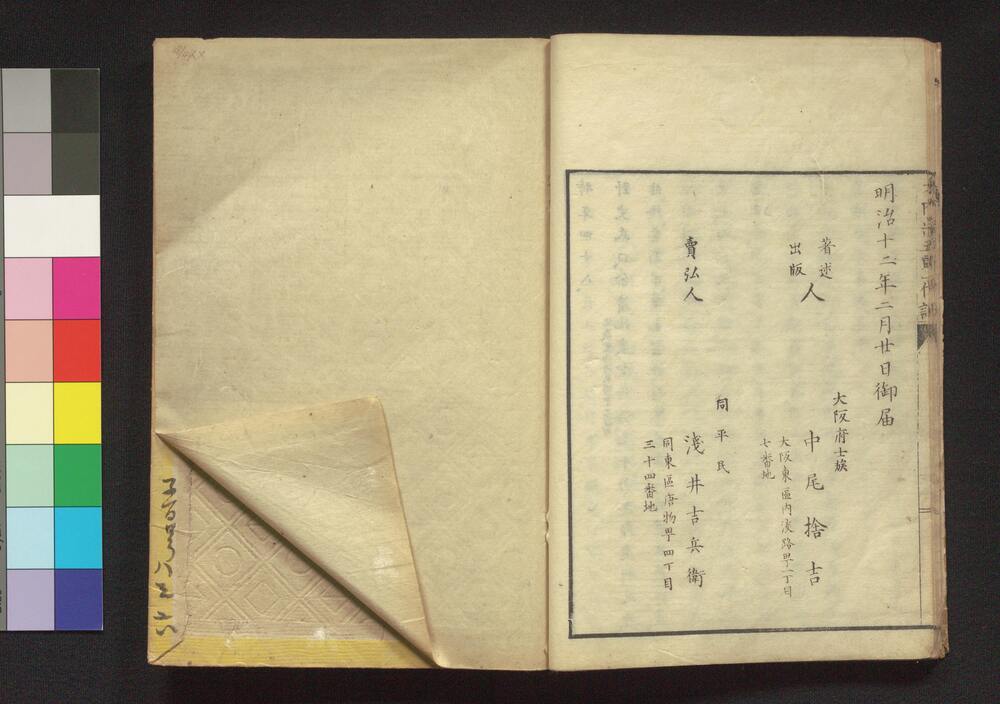 明治十二年二月廿日御届
著述
出版
人
大阪府士族
中尾捨吉
大阪東區内淡路町一丁目
七番地
賣弘人
同平民
淺井吉兵衛
同東區唐物町四丁目
三十四番地